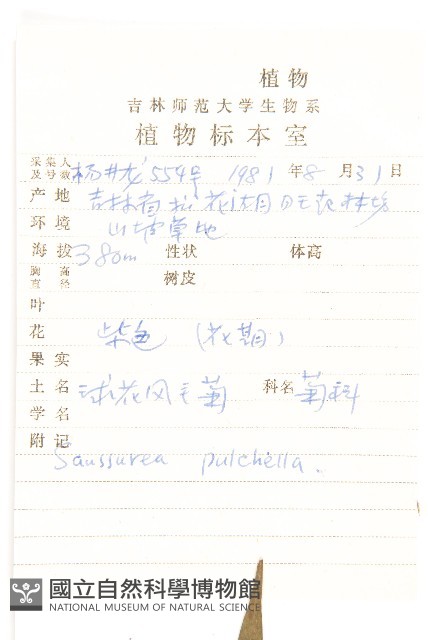 植物
吉林师范大学生物系
植物标本室
采集人及号数 杨井龙 554号 1981年8月31日
产地 吉林省 林场
环境 山坡草地
海拔 380m 性状 体高
胸高直径 树皮
叶
花 紫色 (花期)
果实
土名 球花风毛菊 科名 菊科
学名
附记
Saussurea pulchella.
國立自然科學博物館
NATIONAL MUSEUM OF NATURAL SCIENCE